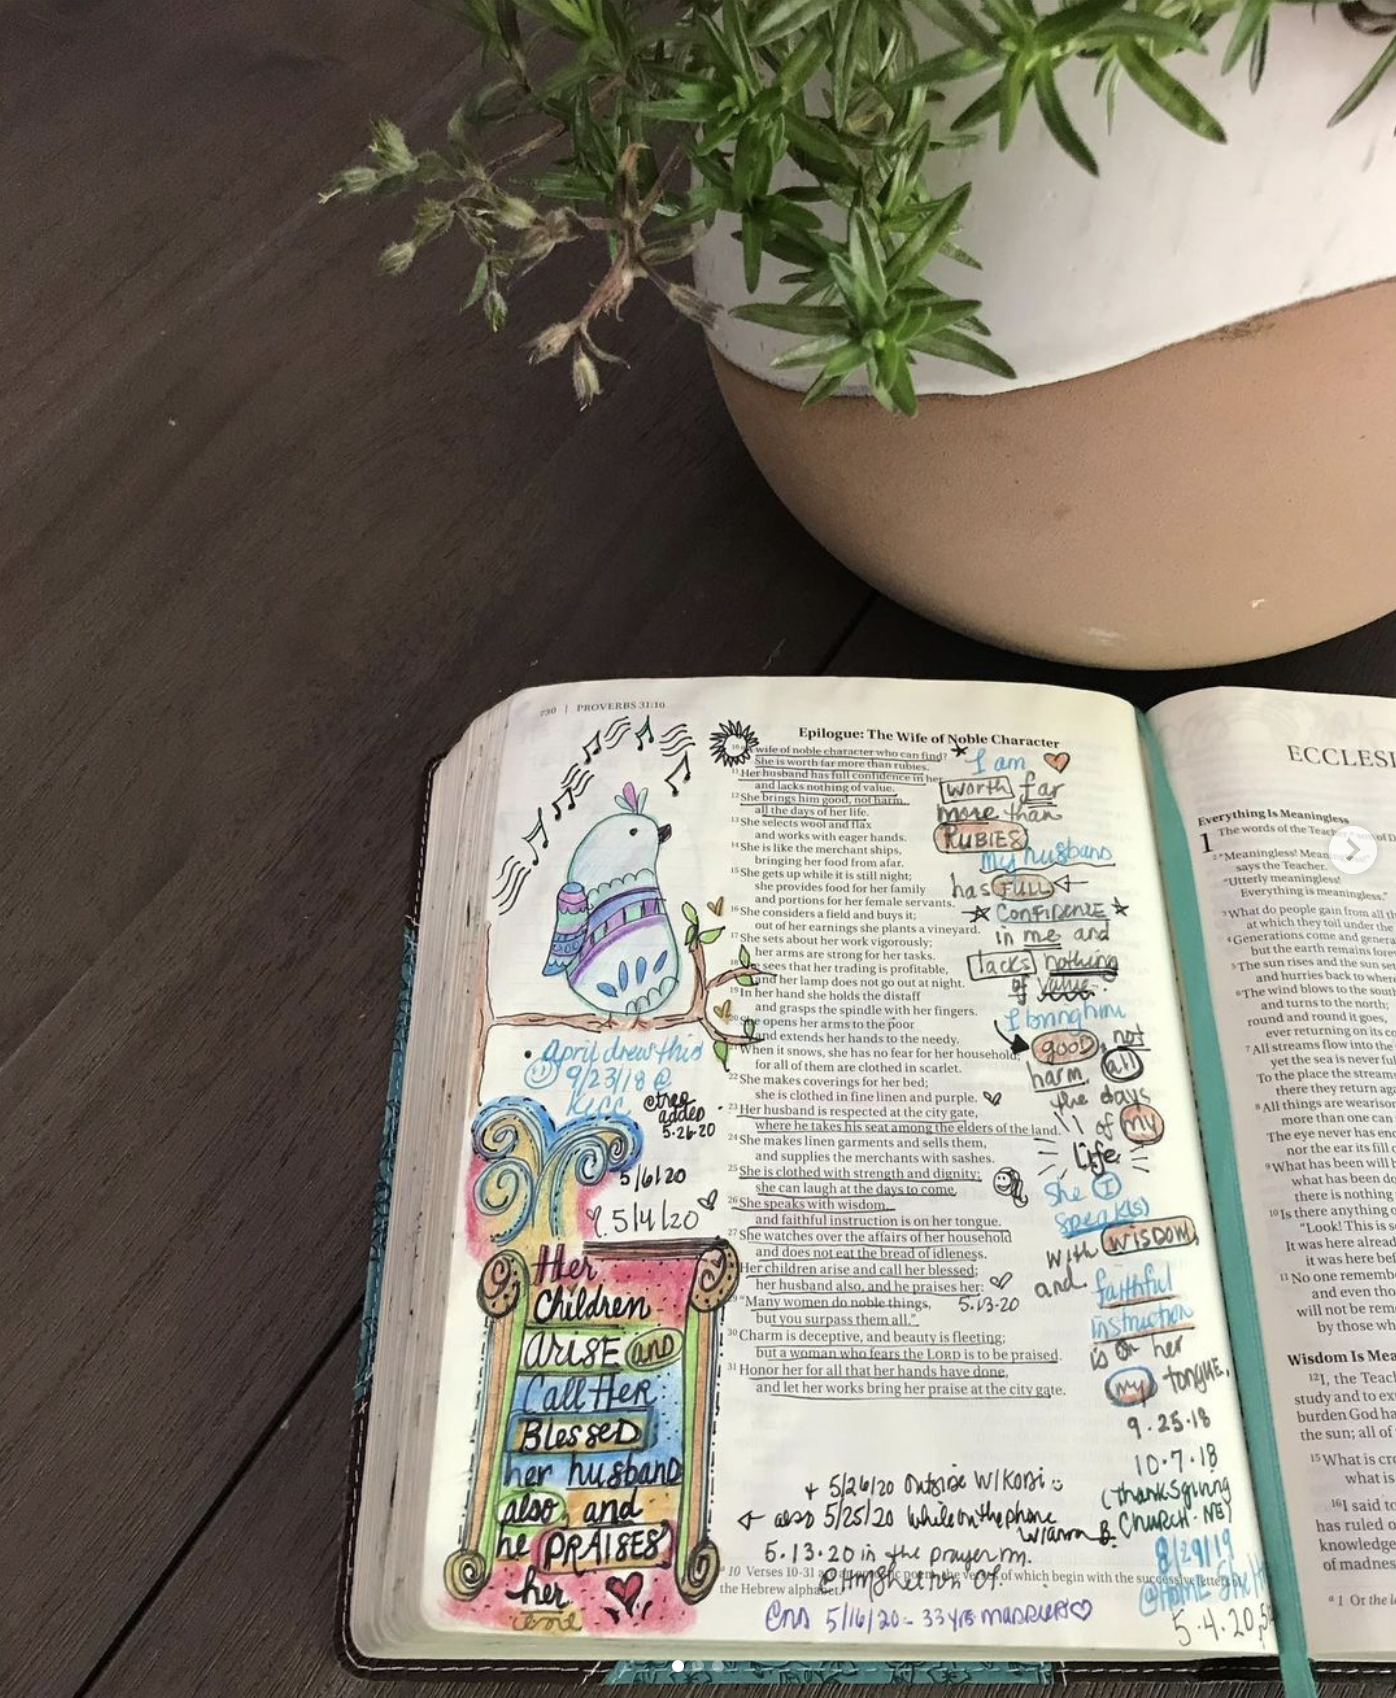 730 | PROVERBS 31:10
Epilogue: The Wife of Noble Character
10 a wife of noble character who can find?
She is worth far more than rubies.
11 Her husband has full confidence in her
and lacks nothing of value.
12 She brings him good, not harm,
all the days of her life.
13 She selects wool and flax
and works with eager hands.
14 She is like the merchant ships,
bringing her food from afar.
15 She gets up while it is still night;
she provides food for her family
and portions for her female servants.
16 She considers a field and buys it;
out of her earnings she plants a vineyard.
17 She sets about her work vigorously;
her arms are strong for her tasks.
18 sees that her trading is profitable,
and her lamp does not go out at night.
19 In her hand she holds the distaff
and grasps the spindle with her fingers.
20 She opens her arms to the poor
and extends her hands to the needy.
When it snows, she has no fear for her household;
for all of them are clothed in scarlet.
22 She makes coverings for her bed;
she is clothed in fine linen and purple.
23 Her husband is respected at the city gate,
where he takes his seat among the elders of the land.
24 She makes linen garments and sells them,
and supplies the merchants with sashes.
25 She is clothed with strength and dignity;
she can laugh at the days to come.
26 She speaks with wisdom,
and faithful instruction is on her tongue.
27 She watches over the affairs of her household
and does not eat the bread of idleness.
Her children arise and call her blessed;
her husband also, and he praises her:
29 "Many women do noble things,
but you surpass them all."
30 Charm is deceptive, and beauty is fleeting;
but a woman who fears the LORD is to be praised.
31 Honor her for all that her hands have done,
and let her works bring her praise at the city gate.
5.13.20
I am
worth far
more than
RUBIES
my husband
has FULL
CONFIDENCE
in me and
lacks nothing
of value.
I bring him
good, not
harm all
the days
of my
Life
She I
speak(s)
with WISDOM
and faithful
instruction
is on her
my tongue.
9.25.18
10.7.18
(Thanksgiving
Church - NB)
8/29/19
5.4.20
April drew this
9/23/18 @
KJCC
@tree
added
5.26.20
5/6/20
5/4/20
Her
Children
ARISE and
Call Her
Blessed
her husband
also, and
he PRAISES
her
+ 5/26/20 outside w/Kobi
also 5/25/20 while on the phone
5.13.20 in the prayer rm.
a 10 Verses 10-31
of which begin with the successive letters
the Hebrew alphabet.
5/16/20 - 33 yrs married
ECCLESI
Everything Is Meaningless
1 The words of the Teacher, son of D
2 "Meaningless! Mean
says the Teacher.
"Utterly meaningless!
Everything is meaningless."
3 What do people gain from all th
at which they toil under the
4 Generations come and genera
but the earth remains forev
5 The sun rises and the sun set
and hurries back to where
6 The wind blows to the south
and turns to the north;
round and round it goes,
ever returning on its co
7 All streams flow into the
yet the sea is never ful
To the place the stream
there they return ag
8 All things are wearisor
more than one can
The eye never has eno
nor the ear its fill o
9 What has been will b
what has been do
there is nothing
10 Is there anything o
"Look! This is s
It was here alread
it was here bef
11 No one rememb
and even tho
will not be rem
by those wh
Wisdom Is Mea
12 I, the Teach
study and to ex
burden God ha
the sun; all of
15 What is cro
what is
16 I said to
has ruled o
knowledge
of madnes
a 1 Or the l